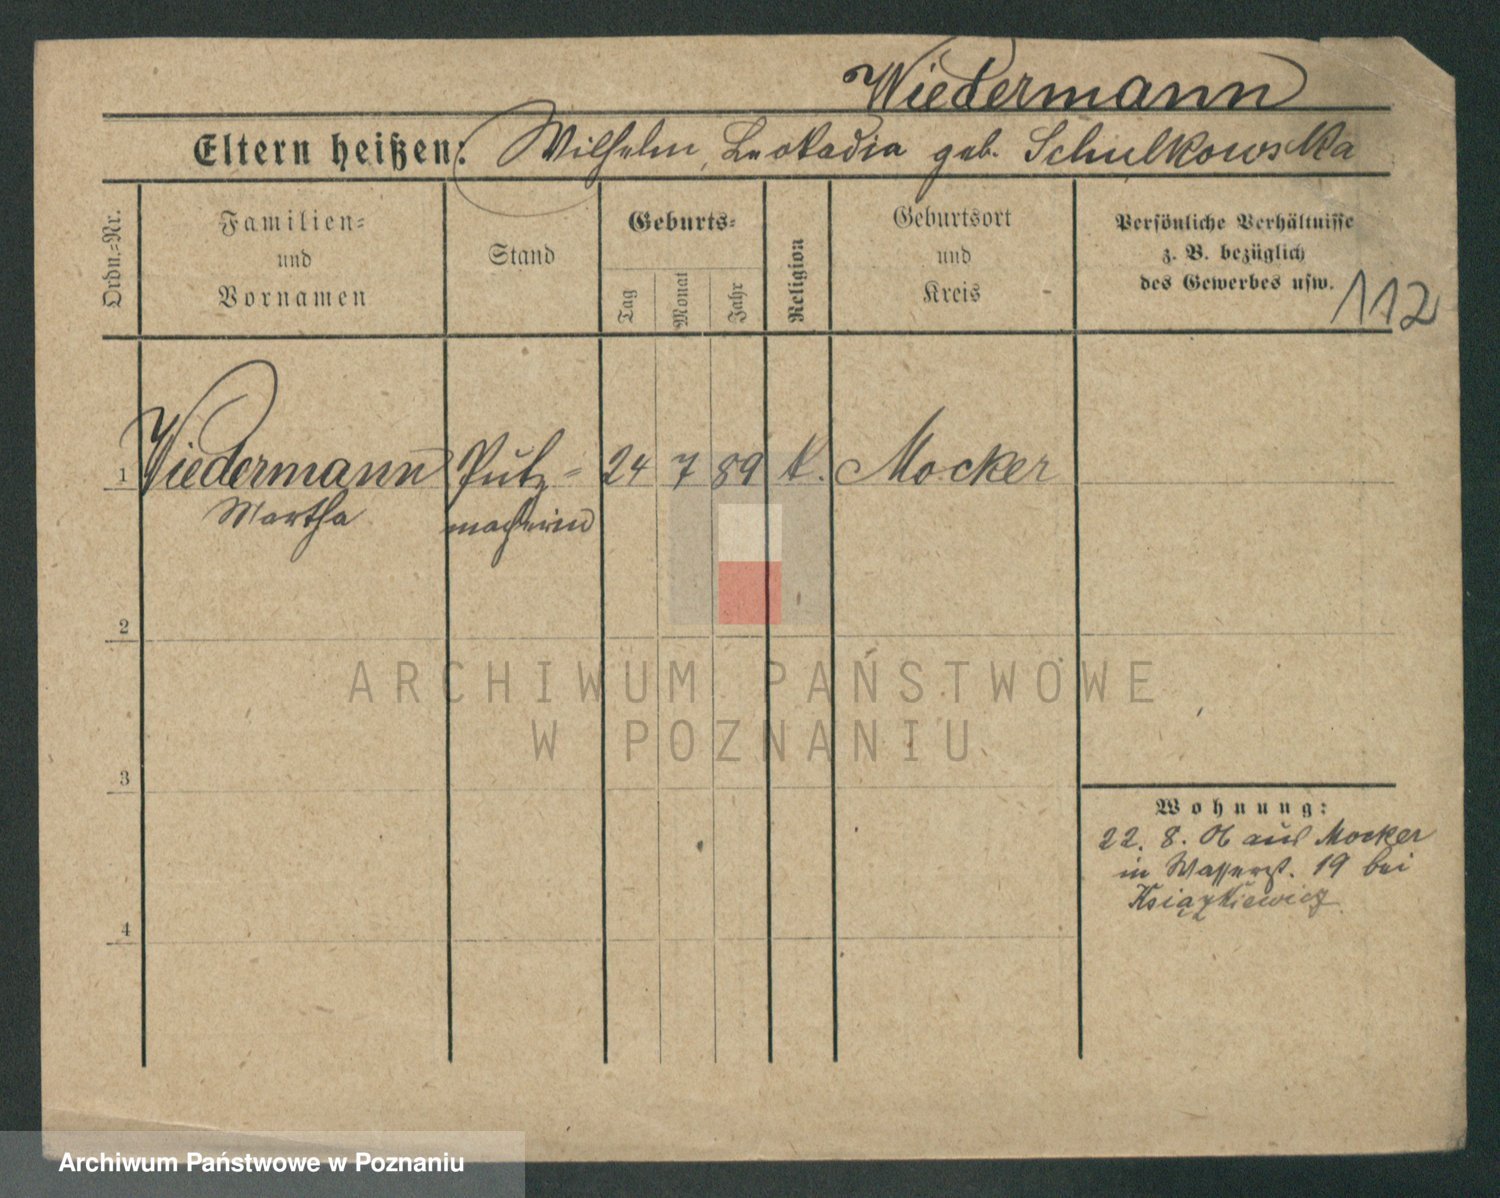 Wiedermann
Eltern heißen: Wilhelm, Leokadia geb. Schulkowska
Ordn.=Nr.
Familien=
und
Vornamen
Stand
Geburts=
Tag
Monat
Jahr
Religion
Geburtsort
und
Kreis
Persönliche Verhältnisse
z. B. bezüglich
des Gewerbes usw.
112
1 Wiedermann Putz= 24 7 89 k. Mocker
Martha macherin
2
3
4
Wohnung:
22. 8. 06 aus Mocker
in Wasserst. 19 bei
Książkiewicz
ARCHIWUM PAŃSTWOWE
W POZNANIU
Archiwum Państwowe w Poznaniu